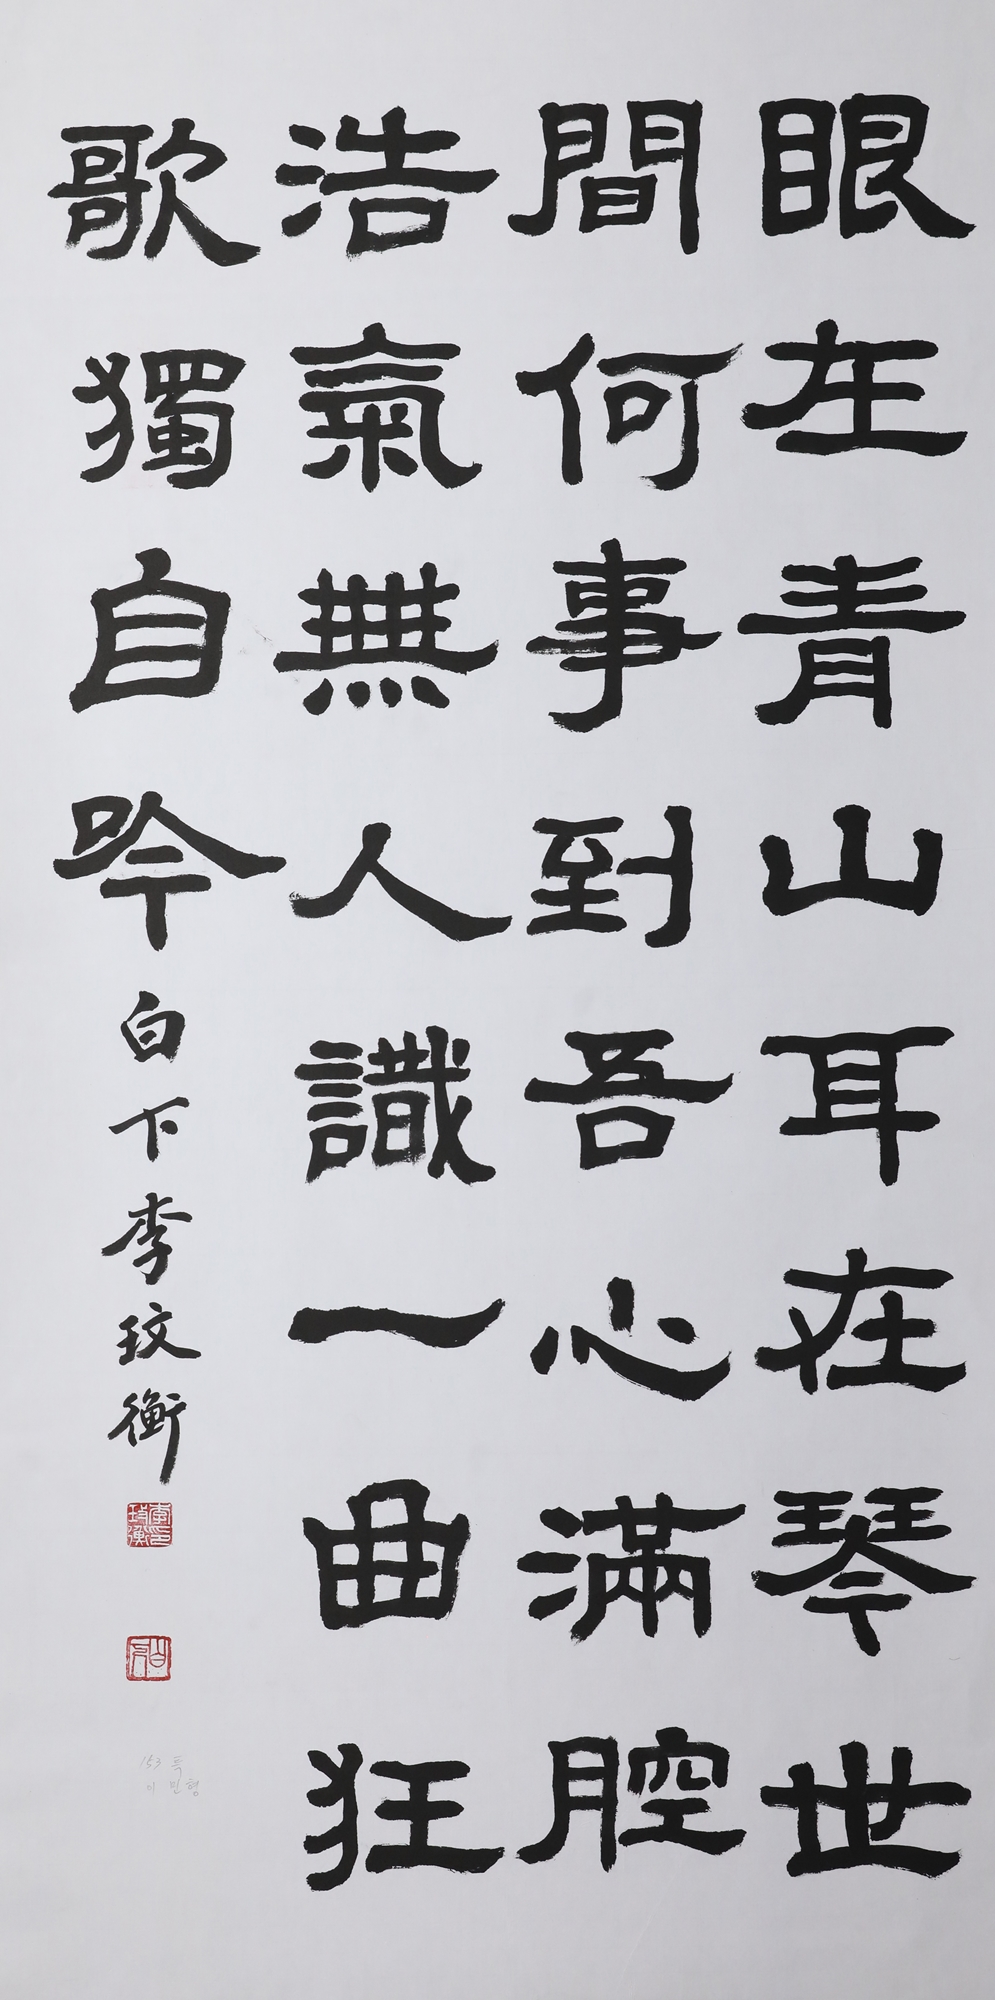 眼在青山耳在琴世
間何事到吾心滿腔
浩氣無人識一曲狂
歌獨自吟
白下李玟衡
李玟衡印
153 특
이민형